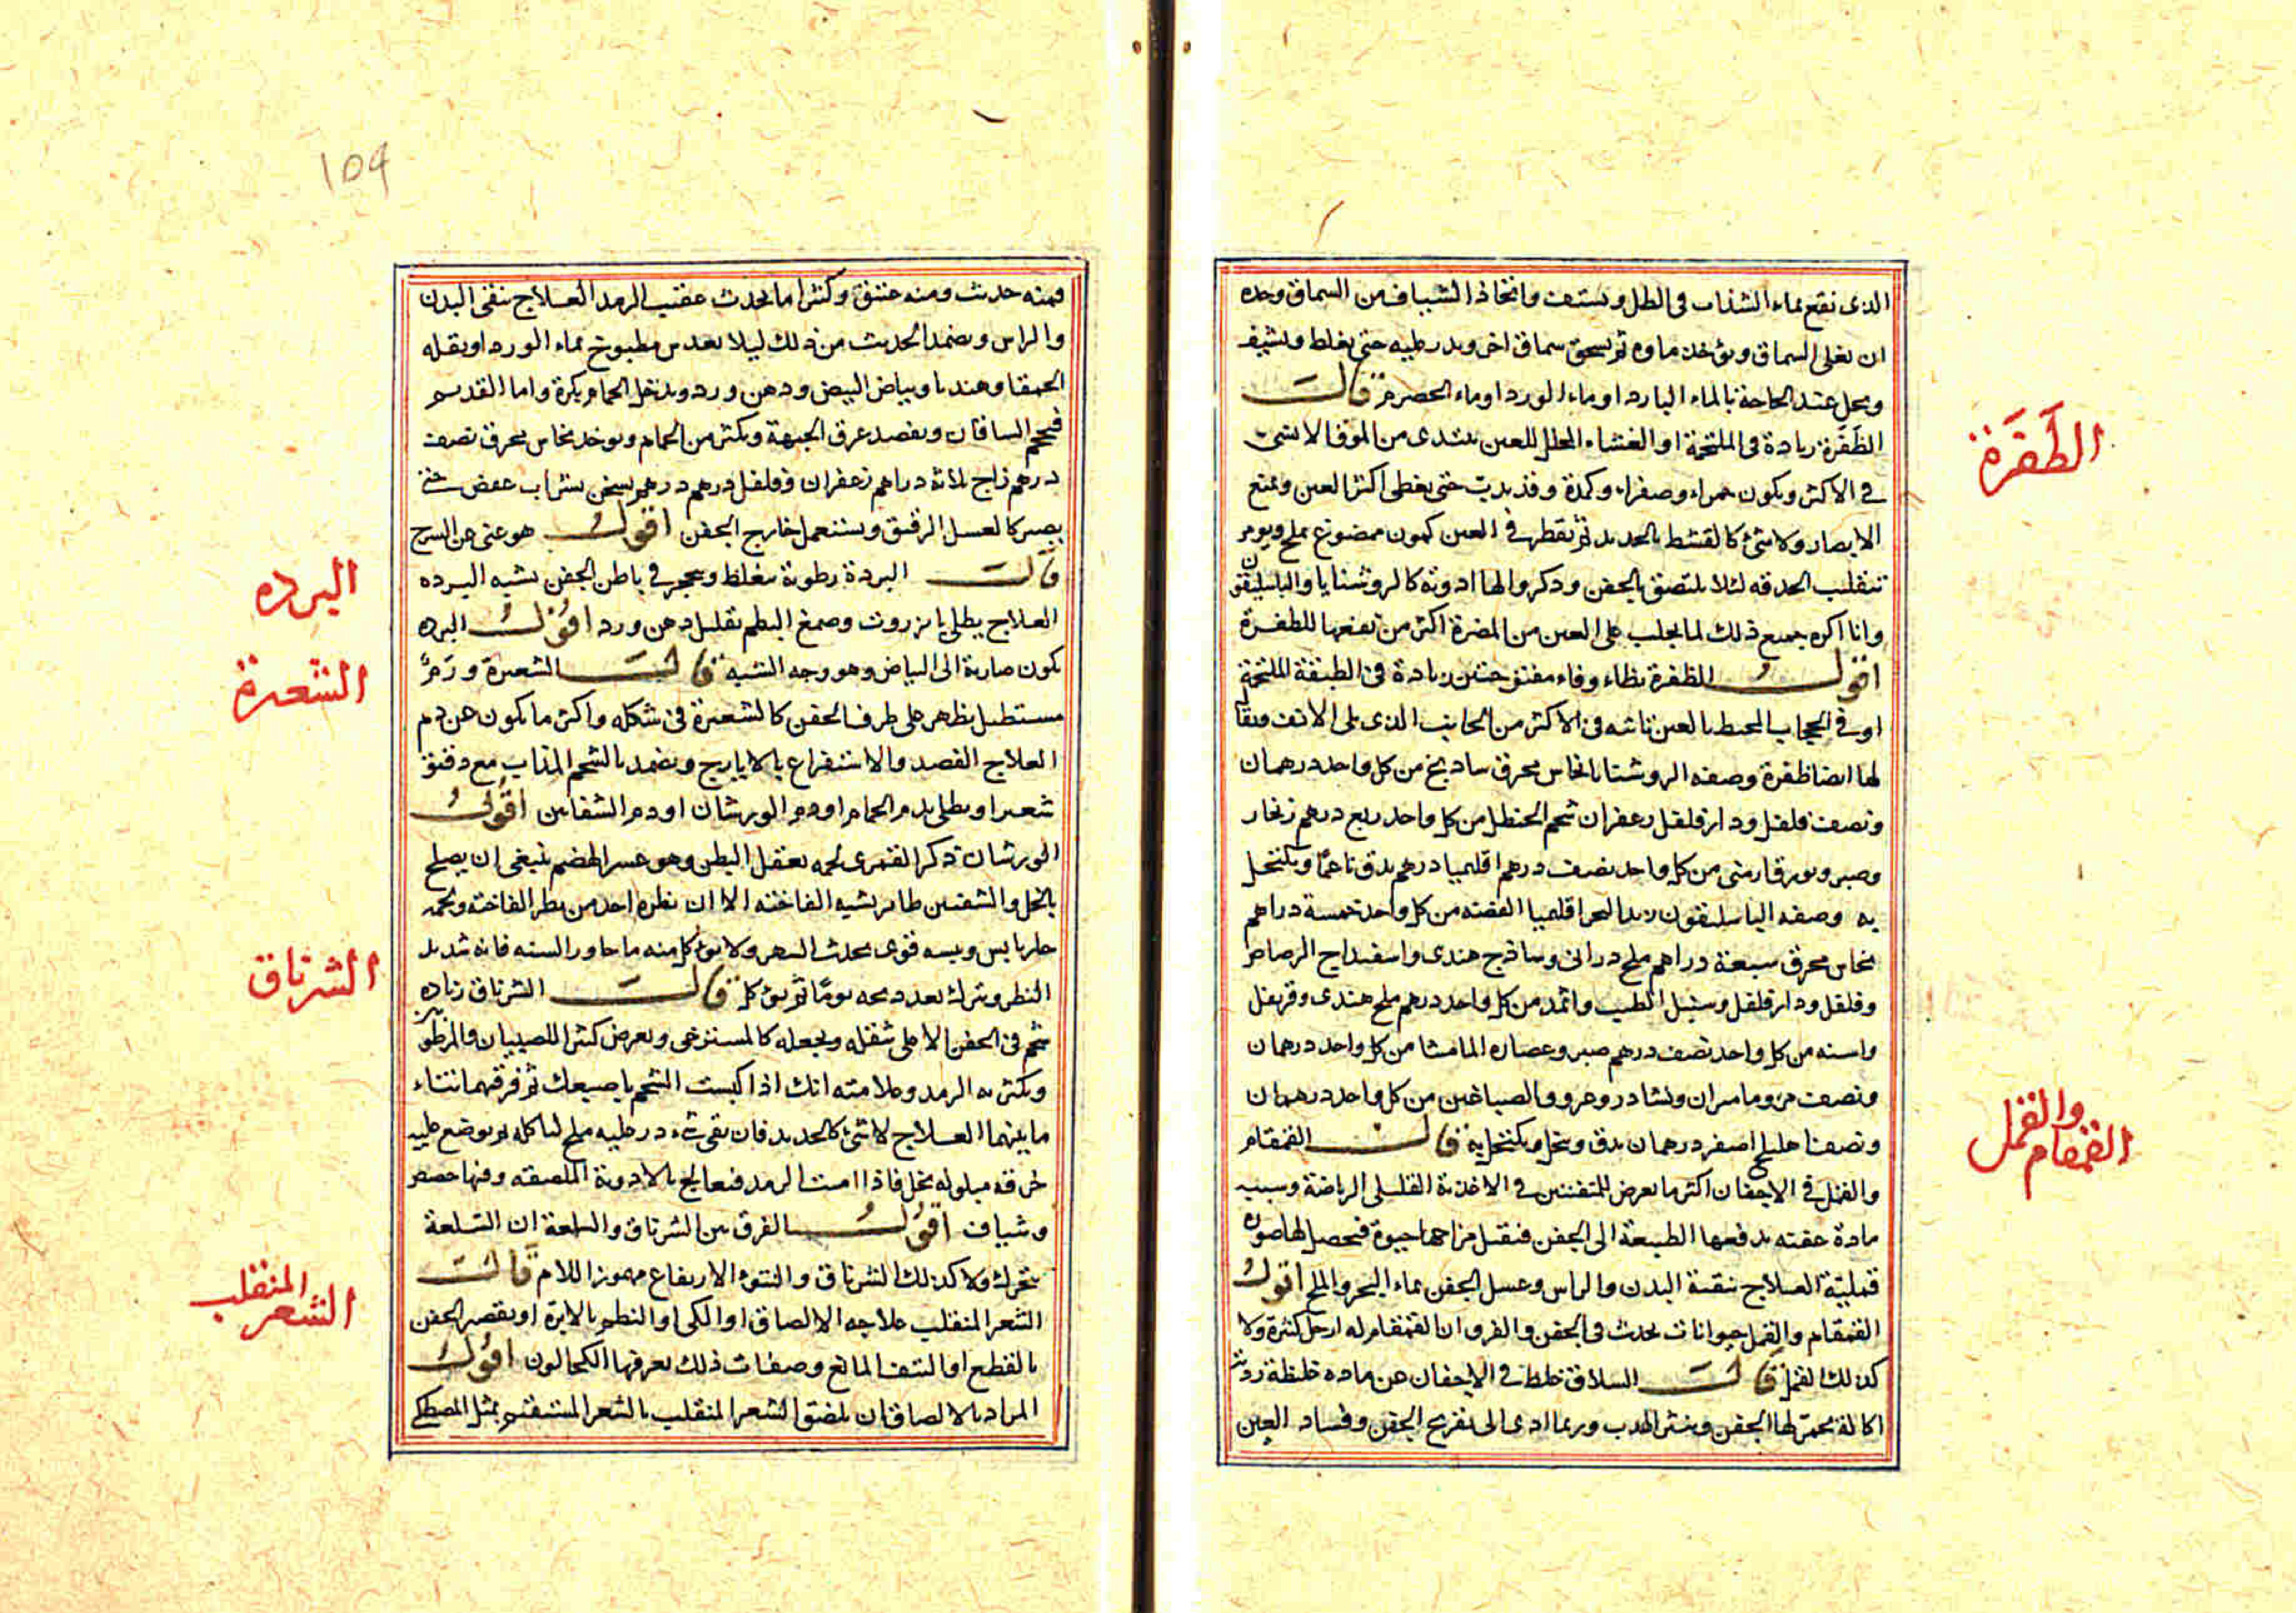 الذى نقع بماء الشذاب فى الظل ويستف واتخاذ الشياف من السماق وحده
ان يغلى السماق ويؤخذ ماوه ثم يسحق سماق اخر ويدر عليه حتى يغلظ ويشيف
ويحل عند الحاجة بالماء البارد او ماء الورد او ماء الحصرم قالت
الظفرة زيادة فى الملتحمة او الغشاء المجلل للعين يبتدى من الموق الانسى
فى الاكثر ويكون حمراء وصفراء وكمدة وقد يديت حتى يغطى اكثر العين ويمنع
الابصار ولا شئ كالقشط بالحديد ثم يقطر فى العين كمون ممضوغ بملح ويومر
بتقليب الحدقه لئلا يلتصق بالجفن وذكروا لها ادوية كالروشنايا والباسليقون
وانا اكره جميع ذلك لما يجلب على العين من المضرة اكثر من نفعها للظفرة
اقول الظفرة بظاء وفاء مفتوحتين زيادة فى الطبقة الملتحمة
او فى الحجاب المحيط بالعين ناتئه فى الاكثر من الجانب الذى يلى الانف ويقال
لها ايضا ظفرة وصفه الروشنايا نحاس محرق ساديج من كل واحد درهمان
ونصف فلفل ودارفلفل زعفران شحم الحنظل من كل واحد ربع درهم زنجار
وصبر وبورق ارمنى من كل واحد نصف درهم اقليميا درهم يدق ناعمًا ويكتحل
به وصفه الباسليقون زبد البحر اقليميا الفضة من كل واحد خمسة دراهم
نحاس محرق سبعة دراهم ملح درانى وساذج هندى واسفيداج الرصاص
وفلفل ودارفلفل وسنبل الطيب واثمد من كل واحد درهم ملح هندى وقرنفل
واسنه من كل واحد نصف درهم صبر وعصاره المامشا من كل واحد درهمان
ونصف مر ومامران ونشادر وعروق الصباغين من كل واحد درهمان
ونصف اهليلج اصفر درهمان يدق وينخل ويكتحل به قالت القمقام
والقمل فى الاجفان اكثر ما يعرض للمتفننين فى الاغذية القليلى الرياضة وسببه
مادة عفنه يدفعها الطبيعة الى الجفن فتقبل مزاجها حيوة فيحصل لها صورة
قملية العلاج تنقية البدن والراس وغسل الجفن بماء البحر والملح اقول
القمقام والقمل حيوانات يحدث فى الجفن والفرق ان القمقام له ارجل كثيرة ولا
كذلك القمل قالت السلاق غلظ فى الاجفان عن ماده غليظة رديئة
اكالة يحمر لها الجفن وينثر الهدب وربما ادى الى تقريح الجفن وفساد العين
الظفرة
والقمل
القمقام
١٥٩
فمنه حديث ومنه عتيق وكثيرا ما يحدث عقيب الرمد العلاج ينقى البدن
والراس ويضمد الحديث من ذلك ليلا بعدس مطبوخ بماء الورد او بقله
الحمقا وهندبا وبياض البيض ودهن ورد ويدخل الحمام بكرة واما القديم
فيحجم الساقان ويفصد عرق الجبهة ويكثر من الحمام ويوخذ نحاس محرق نصف
درهم زاج ثلاثة دراهم زعفران وفلفل درهم درهم يسحق بشراب عفص حتى
يصير كالعسل الرقيق ويستعمل خارج الجفن اقول هو غنى عن الشرح
قالت البردة رطوبة يغلظ ويتحجر فى باطن الجفن يشبه البرده
العلاج يطلى بانزروت وصمغ البطم بقليل دهن ورد اقول البرده
يكون ضاربة الى البياض وهو وجه التشبيه قالت الشعيرة ورمٌ
مستطيل يظهر على طرف الجفن كالشعيرة فى شكله واكثر ما يكون عن دم
العلاج الفصد والاستفراغ بالايارج ويضمد بالشحم المذاب مع دقيق
شعير او يطلى بدم الحمام او دم الورشان او دم الشفانين اقول
الورشان ذكر القمرى لحمه يعقل البطن وهو عسر الهضم ينبغى ان يصلح
بالخل والشفنين طائر يشبه الفاخته الا ان نظره احد من نظر الفاخته ولحمه
حار يابس ويبسه قوى يحدث السهر ولا يؤكل منه ما جاوز السنه فانه شديد
النظر ويترك بعد ذبحه يومًا ثم يؤكل قالت الشرناق زياده
شحم فى الجفن الاعلى يثقله ويجعله كالمسترخى ويعرض كثيرا للصبيان والمرطوبين
ويكثر به الرمد وعلامته انك اذا كبست الشحم باصبعك ثم فرقتهما انتتاء
ما بينهما العلاج لا شئ كالحديد فان بقى شئ در عليه ملح لتاكله ثم يوضع عليه
خرقه مبلوله بخل فاذا امنت الرمد فتعالج بالادوية الملصقه وفيها حضض
وشياف اقول الفرق بين الشرناق والسلعة ان السلعة
يتحرك ولا كذلك الشرناق والنتوء الارتفاع مهموز اللام قالت
الشعر المنقلب علاجه الالصاق او الكى او النظم بالابرة او بقصر الجفن
بالقطع او النتف المانع وصفات ذلك يعرفها الكحالون اقول
المراد بالالصاق ان يلصق الشعر المنقلب بالشعر المستقيم بمثل المصطكى
البرده
الشعيرة
الشرناق
المنقلب
الشعر